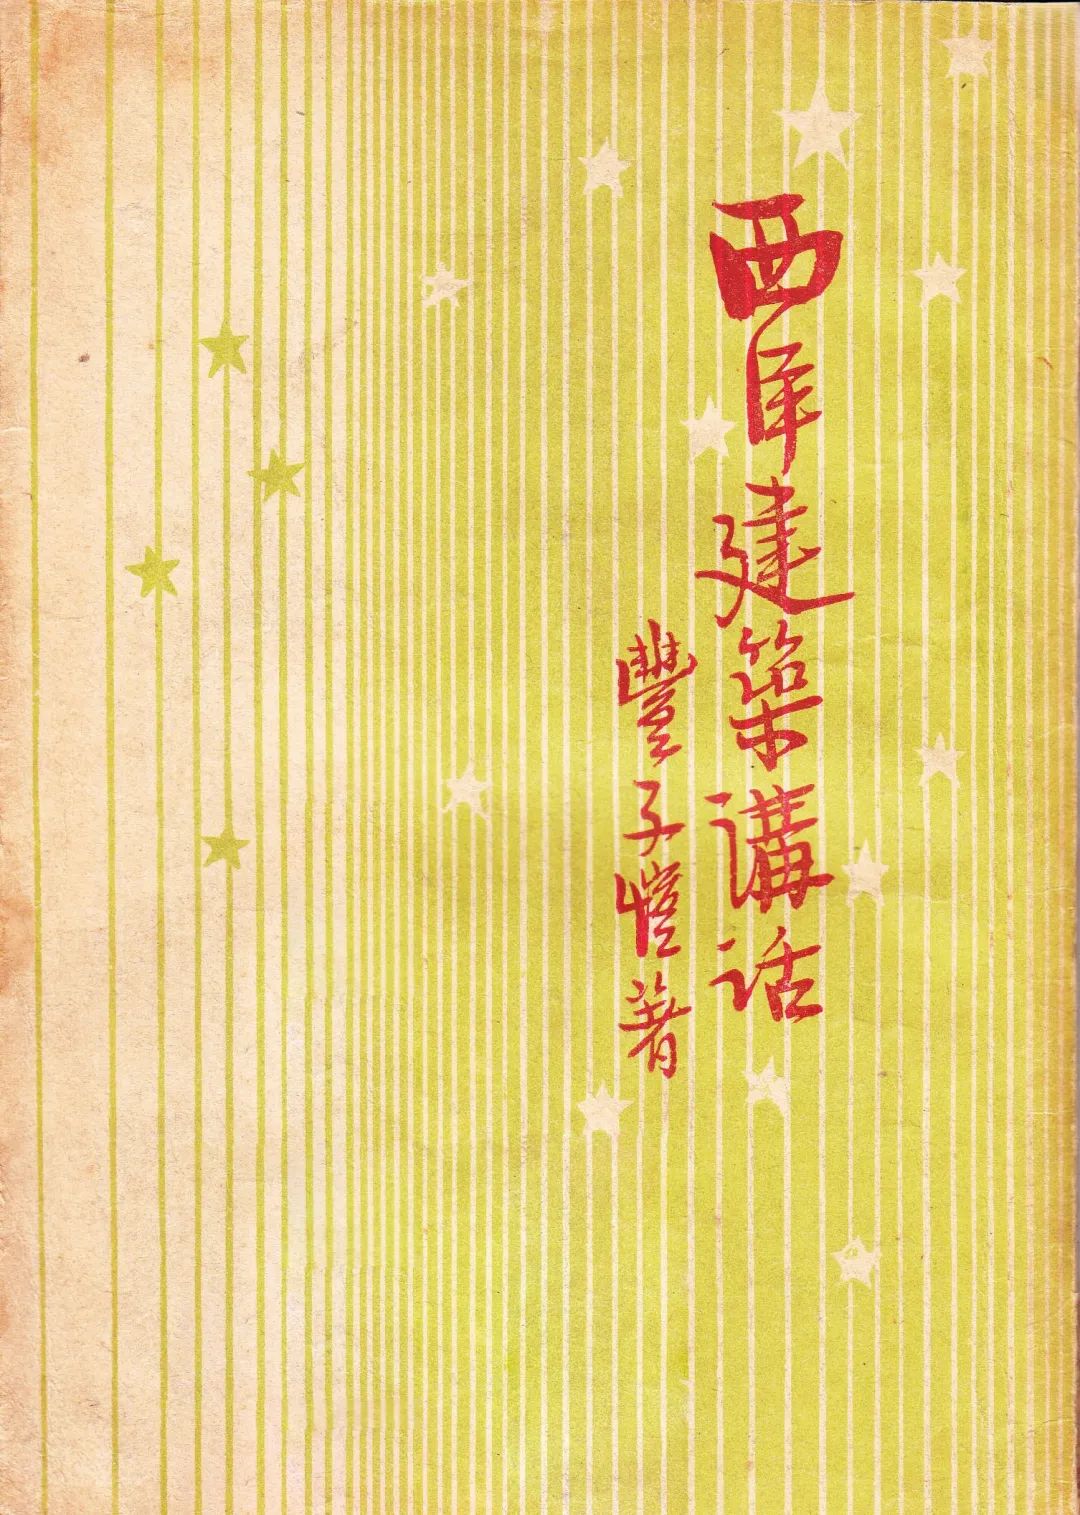 西洋建築講話
豐子愷著